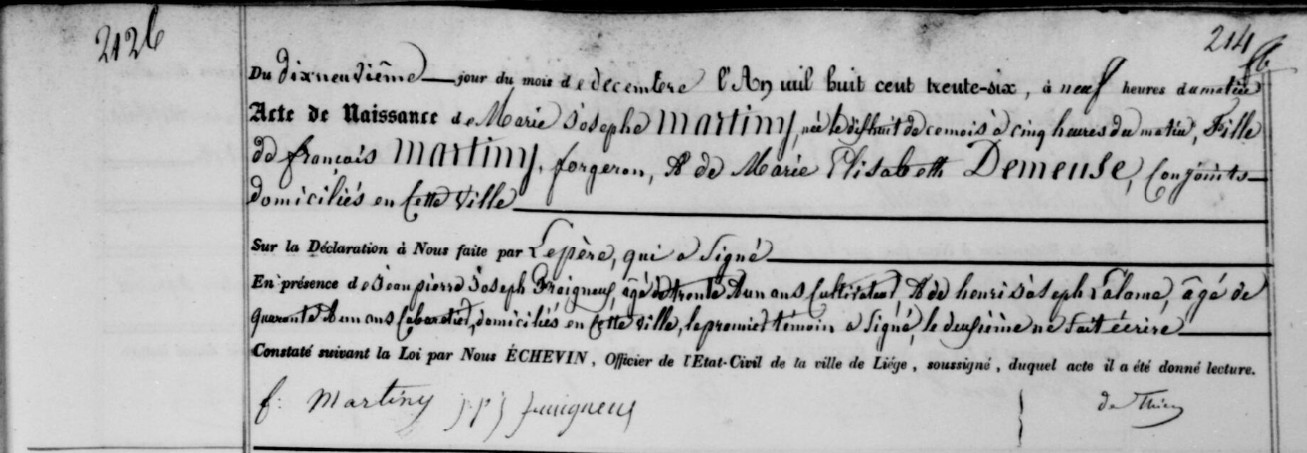 2126
214
Du dixneuvième jour du mois de decembre l'An mil huit cent trente-six, à neuf heures du matin
Acte de Naissance de Marie Josephe Martiny, née le dishuit de ce mois à cinq heures du matin, Fille
de françois Martiny, forgeron, & de Marie Elisabeth Demeuse, Conjoints
domiciliés en Cette Ville
Sur la Déclaration à Nous faite par Le père, qui a Signé
En présence de Jean pierre Joseph Fraigneux, âgé de trente & un ans Cultivateur & de henri Joseph Salame, âgé de
quarante & un ans Cabaretier, domiciliés en Cette Ville, le premier témoin a Signé, le deuxième ne Sait écrire
Constaté suivant la Loi par Nous ÉCHEVIN, Officier de l'État-Civil de la ville de Liége, soussigné, duquel acte il a été donné lecture.
f: Martiny jpj fraigneux